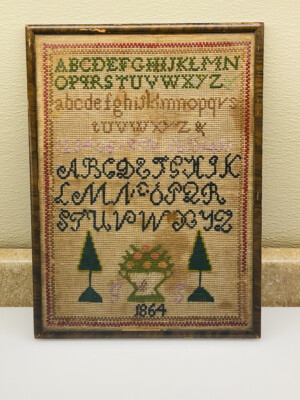 ABCDEFGHIJKLMN
OPQRSTUVWXYZ
abcdefghijklmnopqrs
tUVWXYZ&
ABCDEFGHIK
LMNOPQR
STUVWXYZ
1864